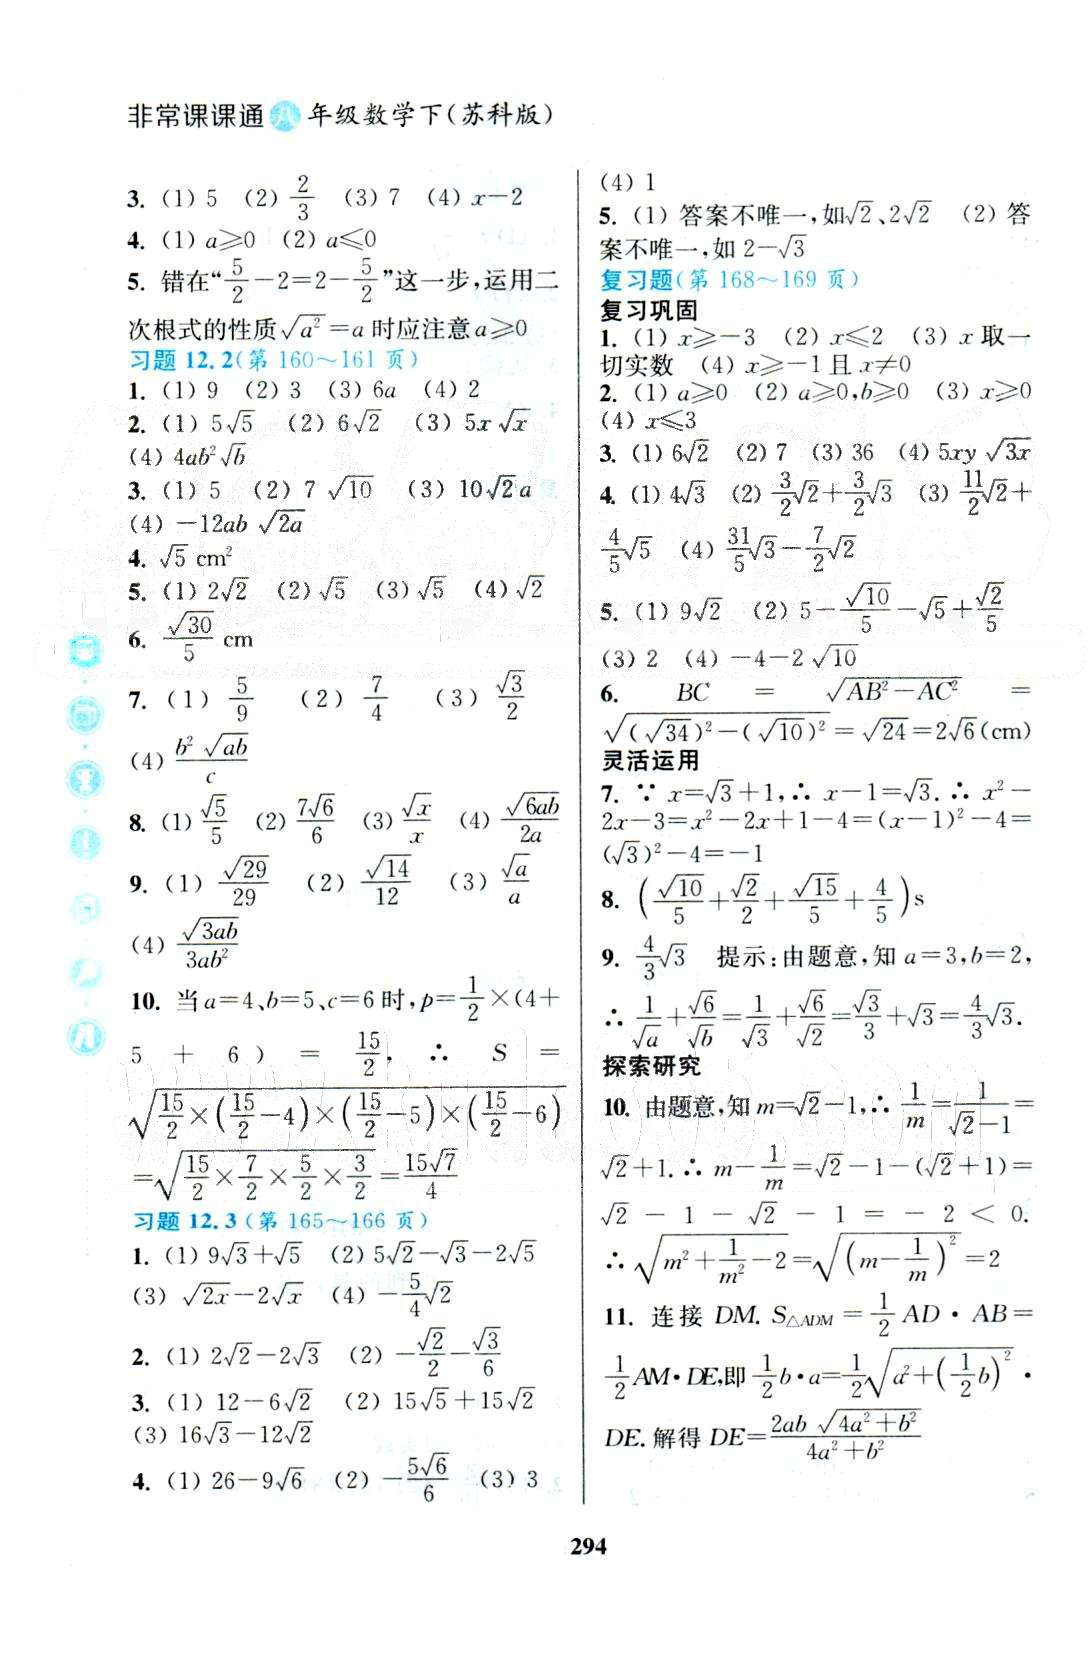 非常课课通八年级数学下(苏科版)
3. (1) 5 (2) 2/3 (3) 7 (4) x-2
4. (1) a≥0 (2) a≤0
5. 错在“5/2-2=2-5/2”这一步,运用二
次根式的性质√(a²)=a 时应注意 a≥0
习题 12.2(第 160~161 页)
1. (1) 9 (2) 3 (3) 6a (4) 2
2. (1) 5√5 (2) 6√2 (3) 5x√x
(4) 4ab²√b
3. (1) 5 (2) 7√10 (3) 10√2a
(4) -12ab√(2a)
4. √5 cm²
5. (1) 2√2 (2) √5 (3) √5 (4) √2
6. √30/5 cm
7. (1) 5/9 (2) 7/4 (3) √3/2
(4) b²√(ab)/c
8. (1) √5/5 (2) 7√6/6 (3) √x/x (4) √(6ab)/2a
9. (1) √29/29 (2) √14/12 (3) √a/a
(4) √(3ab)/3ab²
10. 当 a=4、b=5、c=6 时,p=1/2×(4+
5+6)=15/2, ∴ S=
√(15/2×(15/2-4)×(15/2-5)×(15/2-6))
=√(15/2×7/2×5/2×3/2)=15√7/4
习题 12.3(第 165~166 页)
1. (1) 9√3+√5 (2) 5√2-√3-2√5
(3) √(2x)-2√x (4) -5/4√2
2. (1) 2√2-2√3 (2) -√2/2-√3/6
3. (1) 12-6√2 (2) 15√5+15√2
(3) 16√3-12√2
4. (1) 26-9√6 (2) -5√6/6 (3) 3
(4) 1
5. (1) 答案不唯一,如√2、2√2 (2) 答
案不唯一,如 2-√3
复习题(第 168~169 页)
复习巩固
1. (1) x≥-3 (2) x≤2 (3) x 取一
切实数 (4) x≥-1 且 x≠0
2. (1) a≥0 (2) a≥0,b≥0 (3) x≥0
(4) x≤3
3. (1) 6√2 (2) 7 (3) 36 (4) 5xy√(3x)
4. (1) 4√3 (2) 3/2√2+3/2√3 (3) 11/2√2+
4/5√5 (4) 31/5√3-7/2√2
5. (1) 9√2 (2) 5-√10/5-√5+√2/5
(3) 2 (4) -4-2√10
6. BC = √(AB²-AC²) =
√((√34)²-(√10)²)=√24=2√6(cm)
灵活运用
7. ∵ x=√3+1,∴ x-1=√3. ∴ x²-
2x-3=x²-2x+1-4=(x-1)²-4=
(√3)²-4=-1
8. (√10/5+√2/2+√15/5+4/5)s
9. 4/3√3 提示:由题意,知 a=3,b=2,
∴ 1/√a+√6/√b=1/√3+√6/√2=√3/3+√3=4/3√3.
探索研究
10. 由题意,知 m=√2-1,∴ 1/m=1/(√2-1)=
√2+1. ∴ m-1/m=√2-1-(√2+1)=
√2-1-√2-1=-2<0.
∴ √(m²+1/m²-2)=√((m-1/m)²)=2
11. 连接 DM. S△ADM=1/2 AD·AB=
1/2 AM·DE,即 1/2 b·a=1/2√(a²+(1/2 b)²)·
DE. 解得 DE=2ab√(4a²+b²)/(4a²+b²)
294